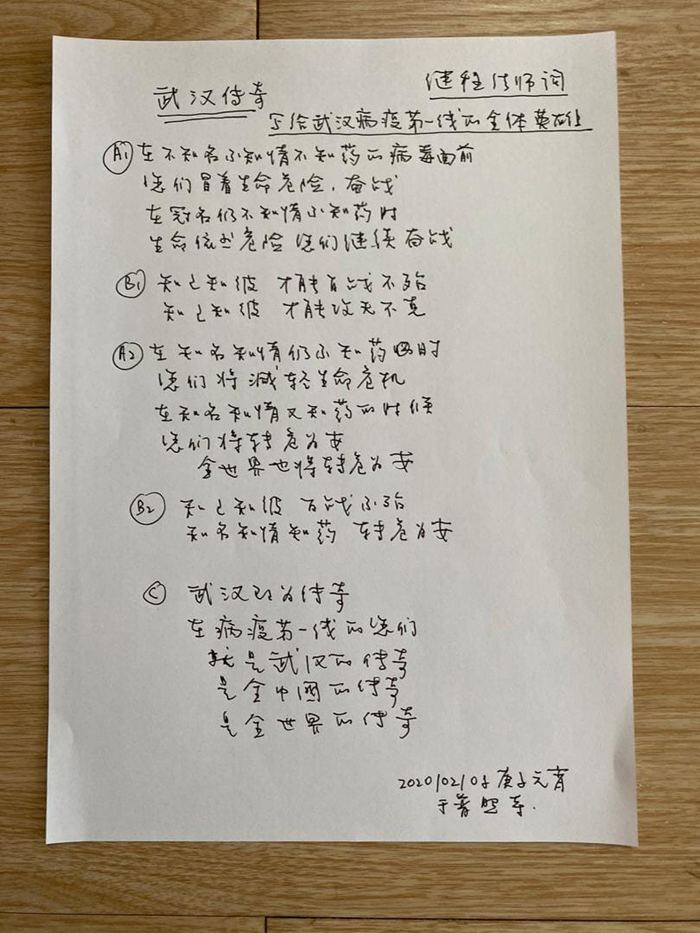 武汉传奇
继程法师词
写给武汉病疫第一线的全体英雄们
A1 在不知名不知情不知药的病毒面前
您们冒着生命危险，奋战
在冠名仍不知情不知药时
生命依然危险 您们继续奋战
B1 知己知彼 才能百战不殆
知己知彼 才能攻无不克
A2 在知名知情仍不知药的时
您们将减轻生命危机
在知名知情又知药的时候
您们将转危为安
全世界也将转危为安
B2 知己知彼 百战不殆
知名知情知药 转危为安
C 武汉成为传奇
在病疫第一线的您们
就是武汉的传奇
是全中国的传奇
是全世界的传奇
2020/02/08 庚子元宵
于普照寺.